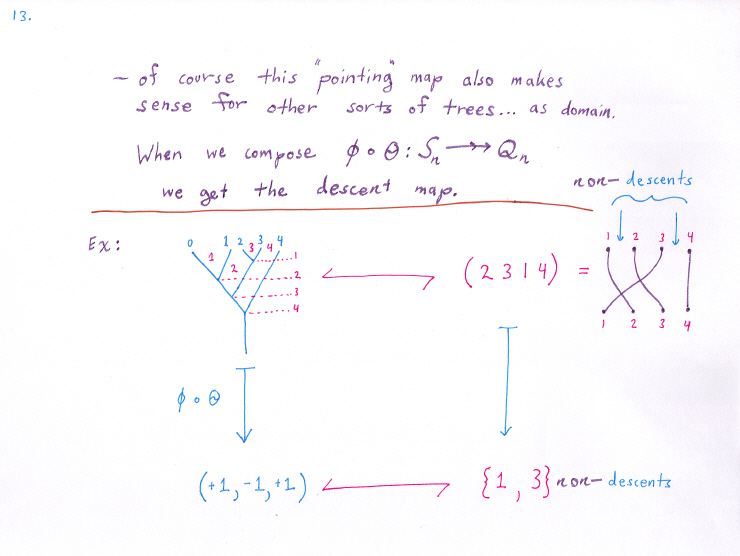 13.
– of course this "pointing" map also makes
sense for other sorts of trees... as domain.
When we compose φ∘Θ: Sₙ ↠ Qₙ
we get the descent map.
non- descents
Ex:
0 1 2 3 4
1 2 3 4
1
2
3
4
(2 3 1 4) =
1 2 3 4
1 2 3 4
φ∘Θ
(+1, -1, +1)
{1, 3} non- descents